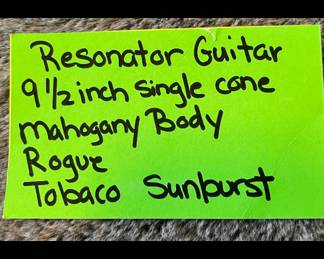 Resonator Guitar
9 1/2 inch single cone
Mahogany Body
Rogue
Tobaco Sunburst